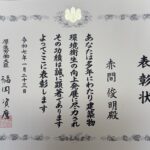 表彰状
赤間俊明殿
あなたは多年にわたり建築物
環境衛生の向上発展に尽力され
その功績は誠に顕著であります
よってここに表彰します
令和七年一月二十三日
厚生労働大臣
福岡資麿